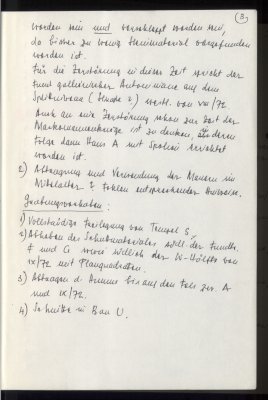 3
worden sein und verschleppt worden sein,
da bisher zu wenig Steinmaterial vorgefunden
worden ist.
Für die Zerstörung in dieser Zeit spricht der
Fund gallienischer Antoniniane auf dem
westl. von VIII/72
Auch an eine Zerstörung schon zur Zeit der
Markomannenkriege ist zu denken, als deren
Folge dann Haus A mit Spolien errichtet
worden ist.
2) Abtragung und Verwendung der Mauern im
Mittelalter. Es fehlen entsprechende Hinweise.
Grabungsvorhaben:
1) Vollständige Freilegung von Tempel S,
2) Abheben des Schuttmaterials der
F und G sowie westlich der W-Hälfte von
IX/72 mit Planquadraten.
3) Abtragen d. Humus bis auf den Fels zw. A
und IX/72.
4) Schnitte in Bau U.